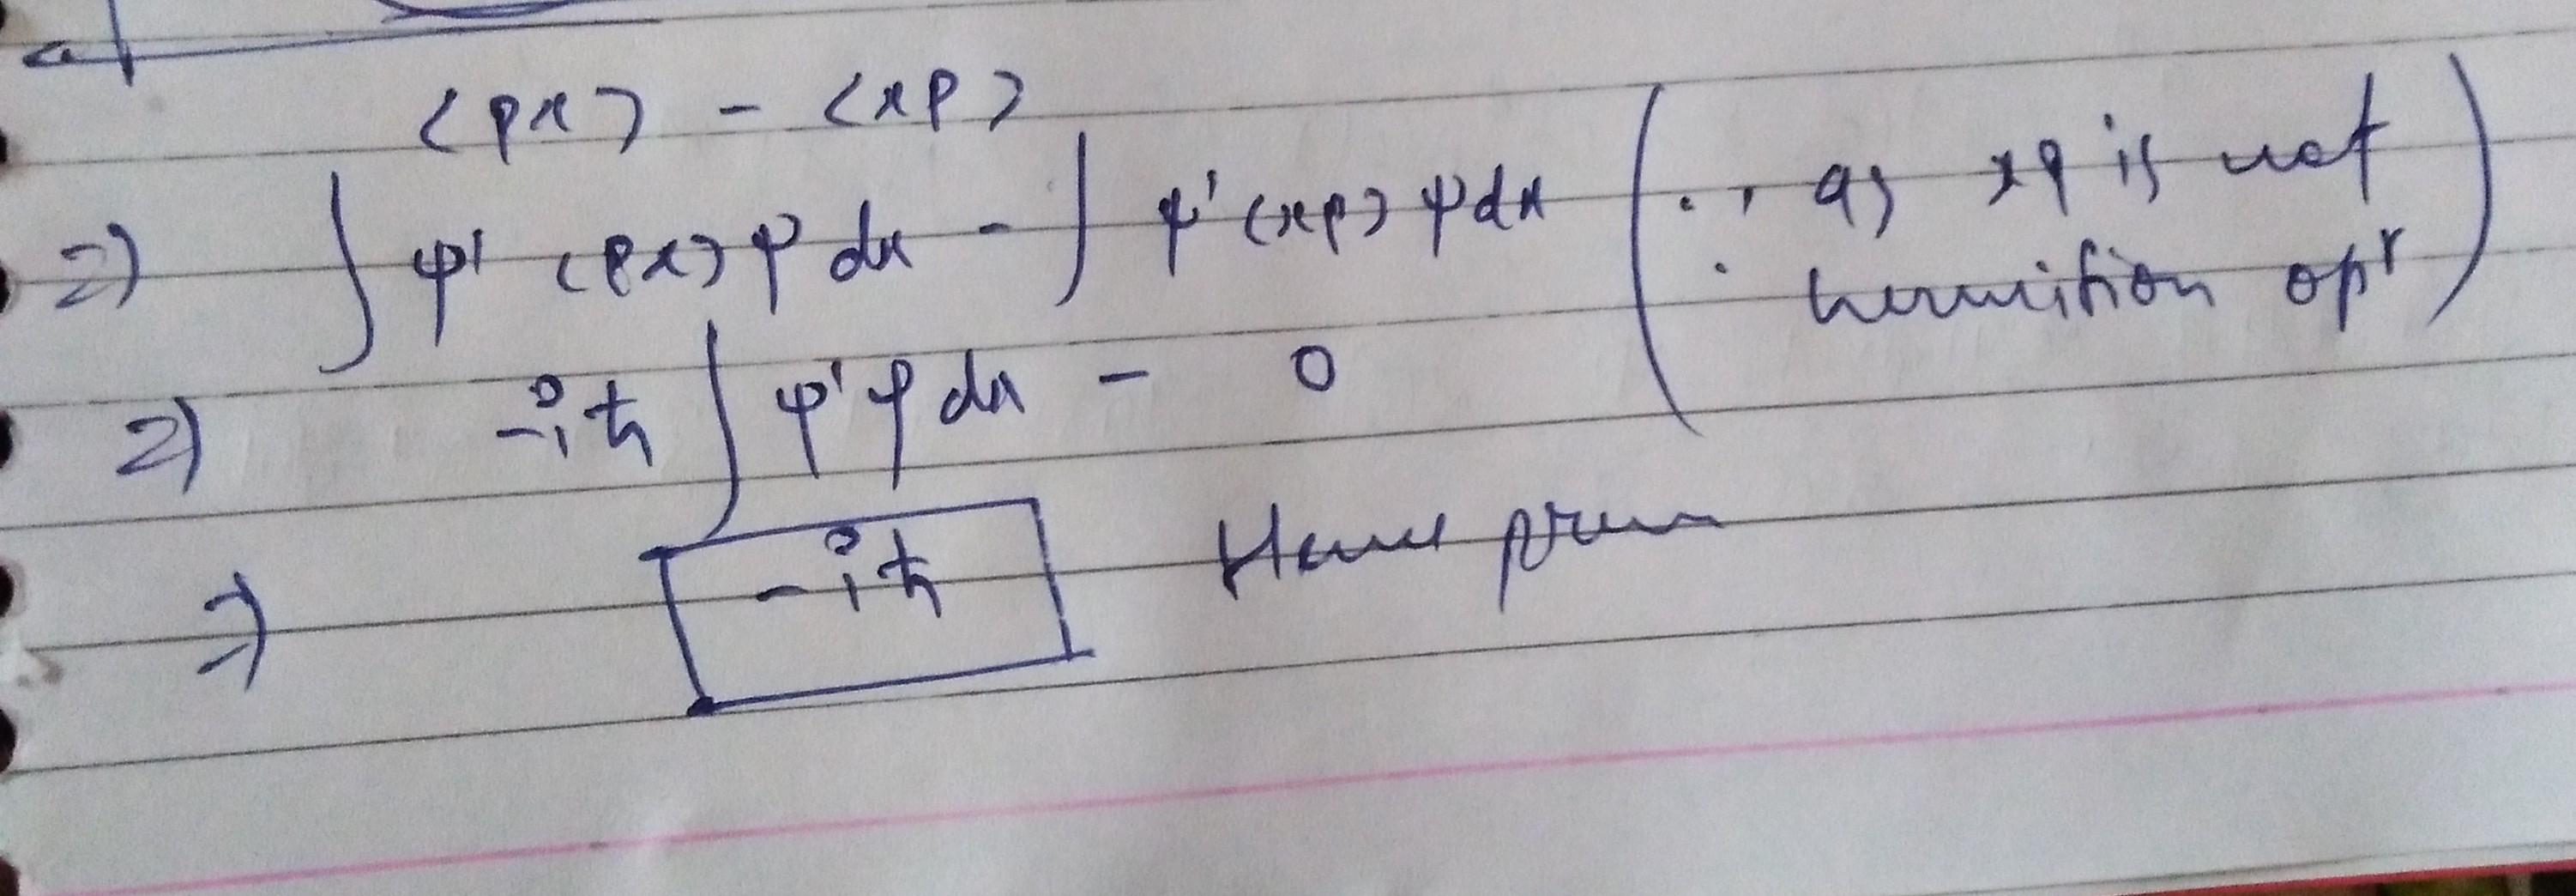 <px> - <xp>
=> ∫ ψ' (px) ψ dx - ∫ ψ' (xp) ψ dx (∵ as xp is not
hermition opʳ)
=> -iħ ∫ ψ' ψ dx - 0
=> -iħ Hence